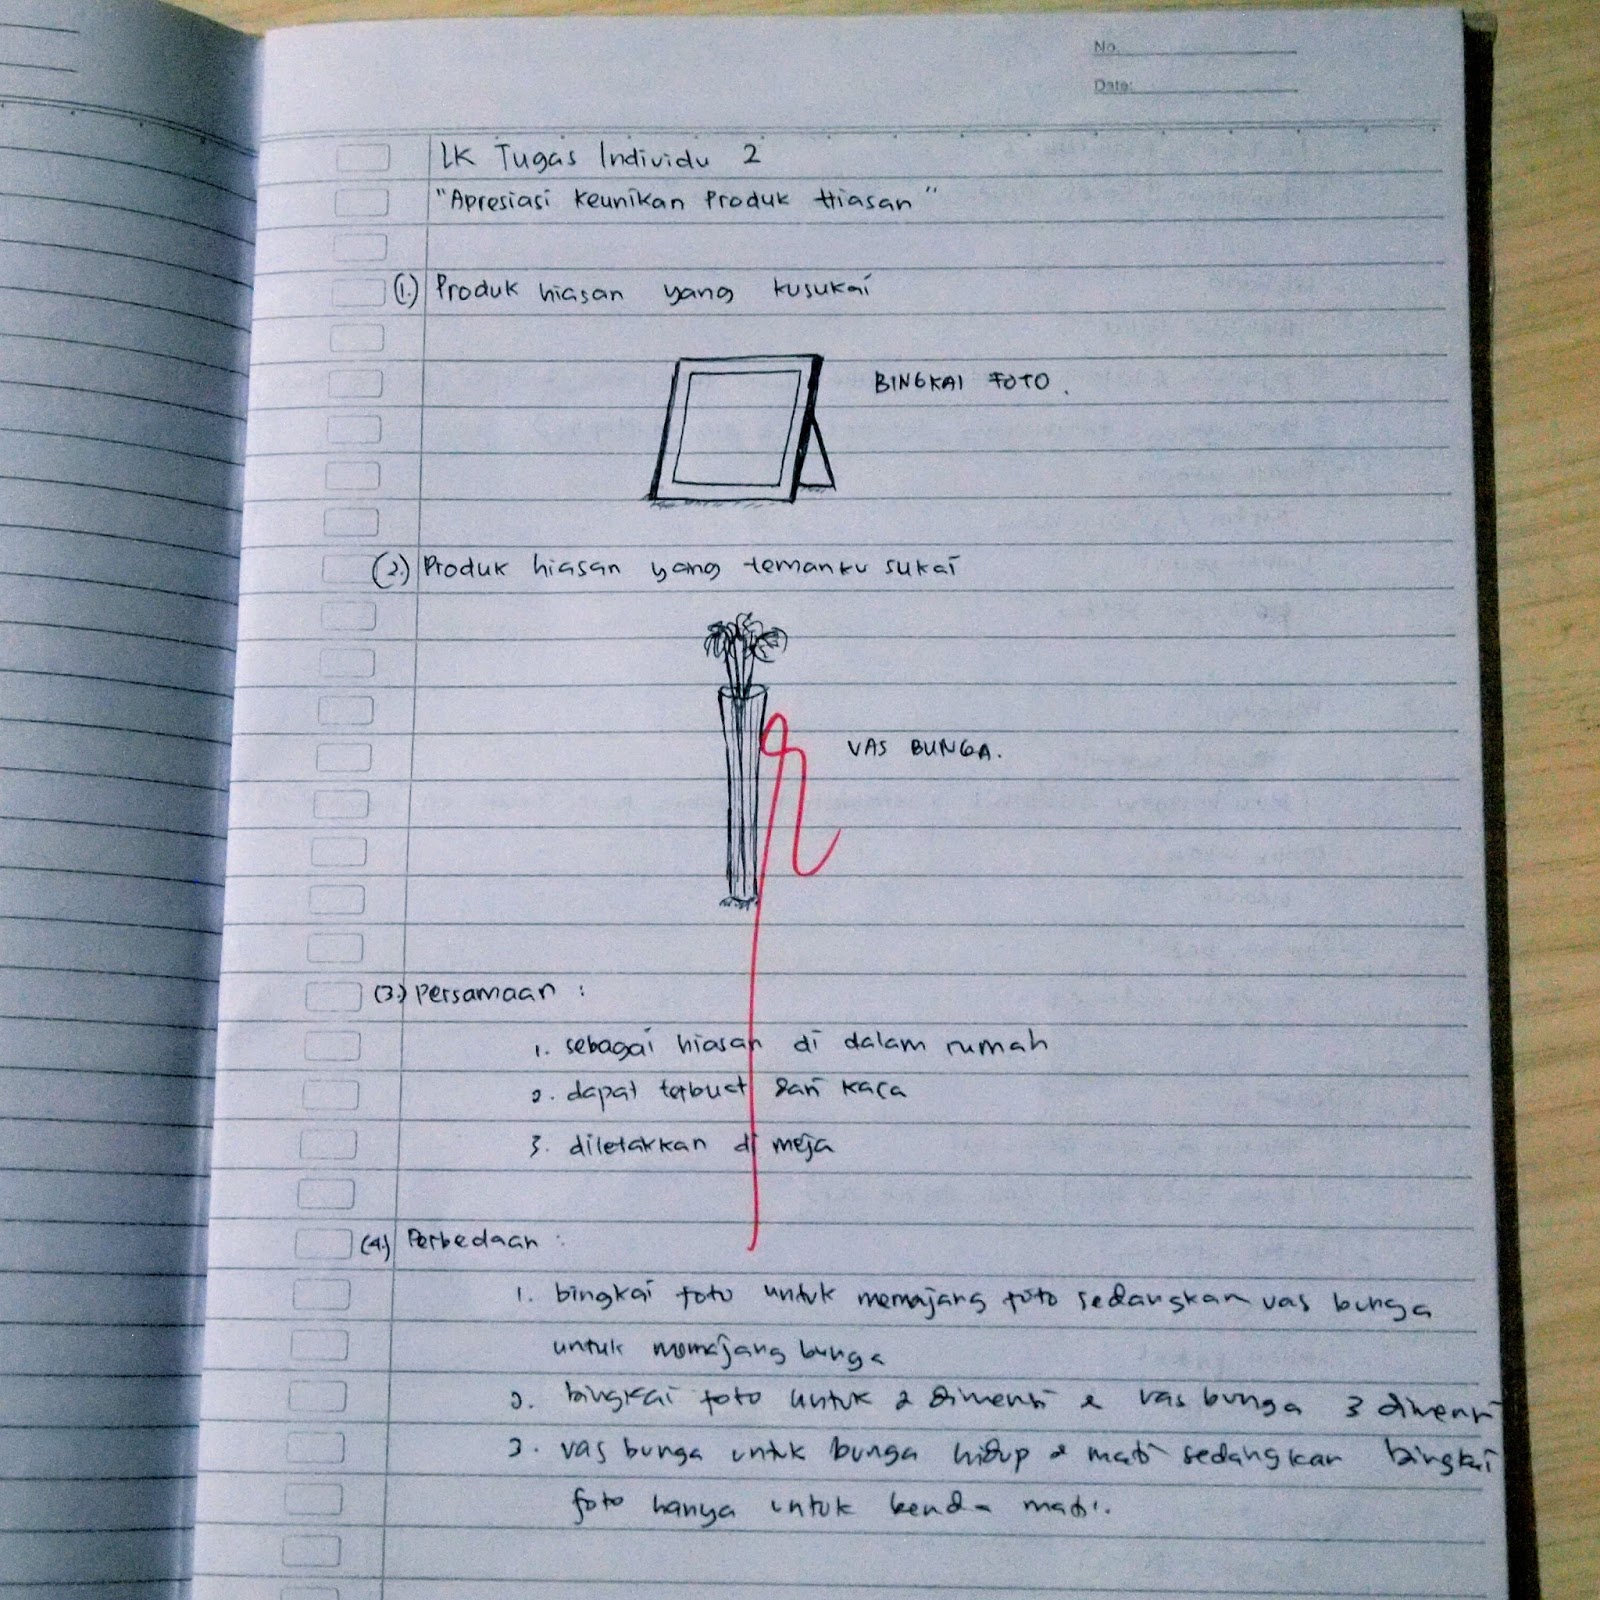 No.
Date:
LK Tugas Individu 2
"Apresiasi Keunikan Produk Hiasan"
(1.) Produk hiasan yang kusukai
BINGKAI FOTO.
(2.) Produk hiasan yang temanku sukai
VAS BUNGA.
(3.) Persamaan :
1. sebagai hiasan di dalam rumah
2. dapat terbuat dari kaca
3. diletakkan di meja
(4.) Perbedaan :
1. bingkai foto untuk memajang foto sedangkan vas bunga
untuk memajang bunga
2. bingkai foto untuk 2 dimensi & vas bunga 3 dimensi
3. vas bunga untuk bunga hidup & mati sedangkan bingkai
foto hanya untuk benda mati.